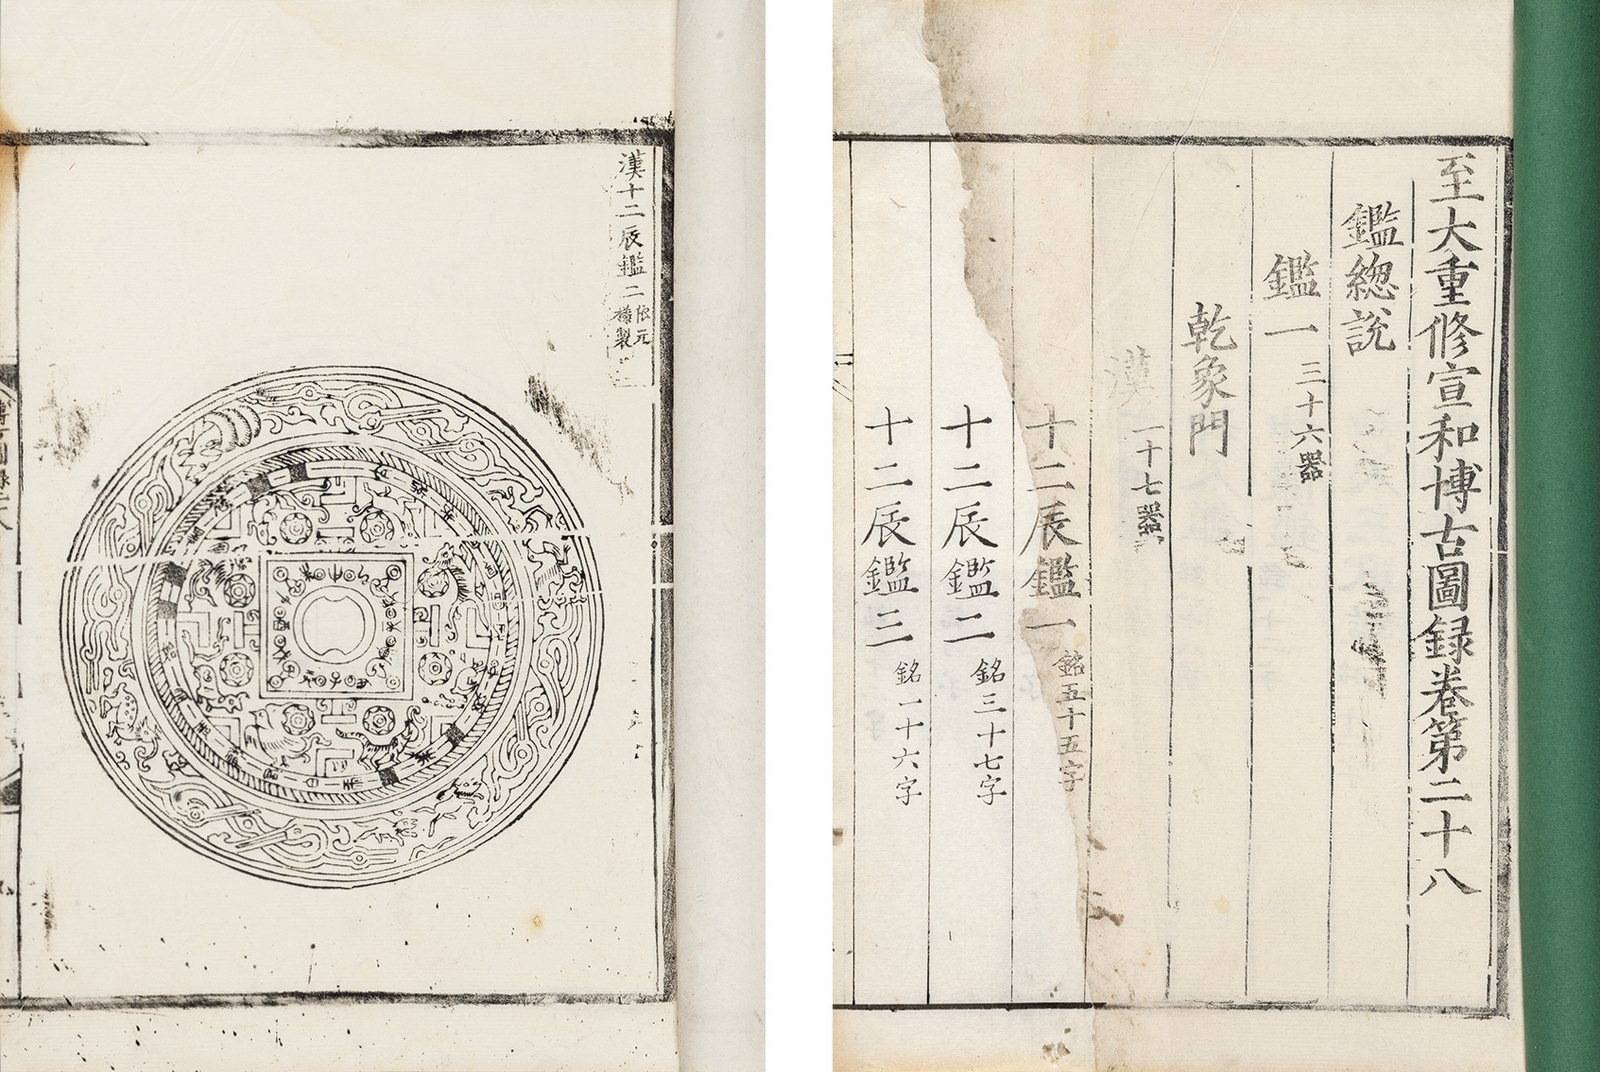 至大重修宣和博古圖錄卷第二十八
鑑總說
鑑一 三十六器
乾象門
漢 一十七器
十二辰鑑一 銘五十五字
十二辰鑑二 銘三十七字
十二辰鑑三 銘一十六字
漢十二辰鑑二 依元樣製